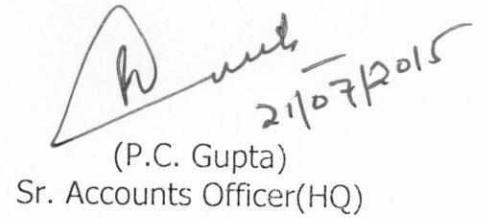 21/07/2015
(P.C. Gupta)
Sr. Accounts Officer(HQ)